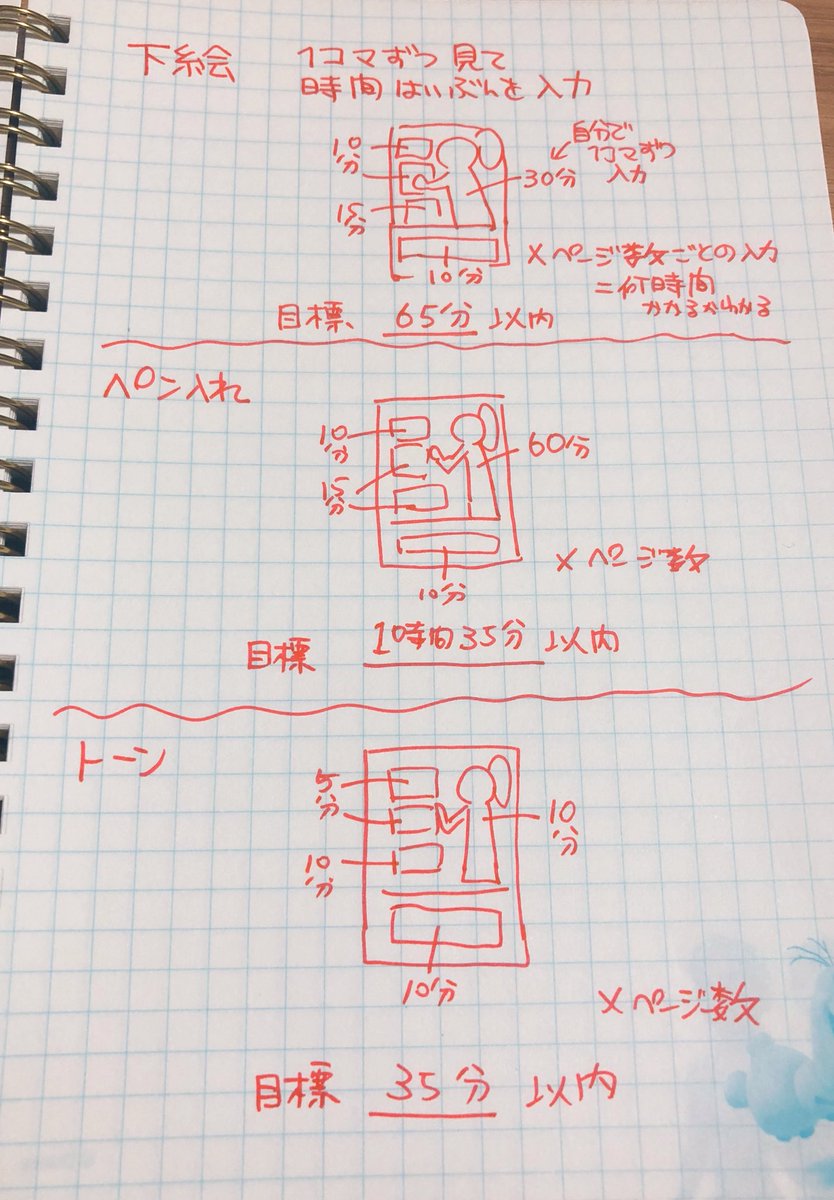 下絵会 1コマずつ見て
時間はいぶんを入力
10分
15分
30分
自分で
1コマずつ
入力
10分
×ページ数ごとの入力
=何時間
かかるかわかる
目標、65分以内
ペン入れ
10分
15分
60分
10分
×ページ数
目標 1時間35分以内
トーン
5分
10分
10分
10分
×ページ数
目標 35分以内